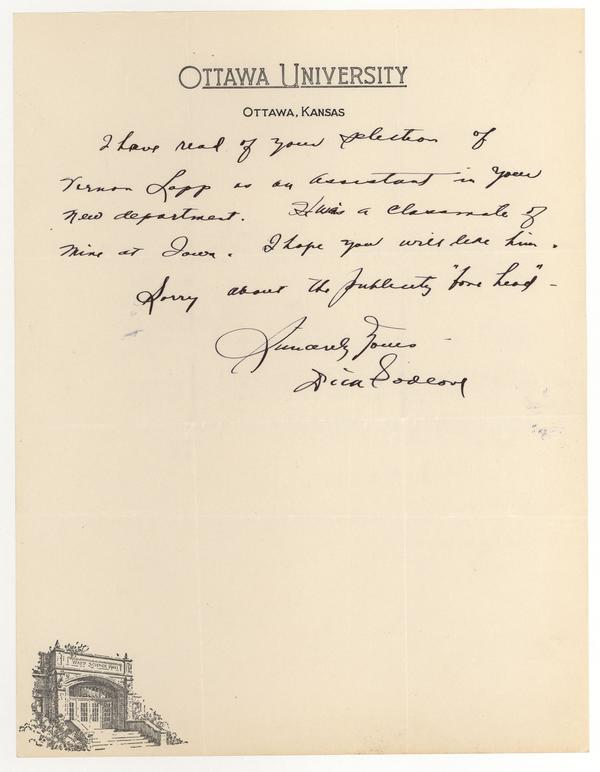 OTTAWA UNIVERSITY
OTTAWA, KANSAS
I have read of your selection of
Vernon Lapp as an assistant in your
new department. He was a classmate of
mine at Iowa. I hope you will like him.
Sorry about the publicity "bone head" -
Sincerely Yours
Dick
WARD SCIENCE HALL